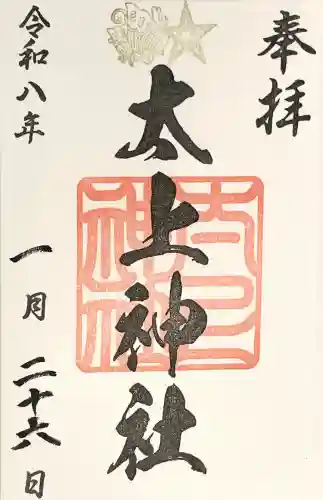 奉拝
太上神社
令和八年 一月 二十六日